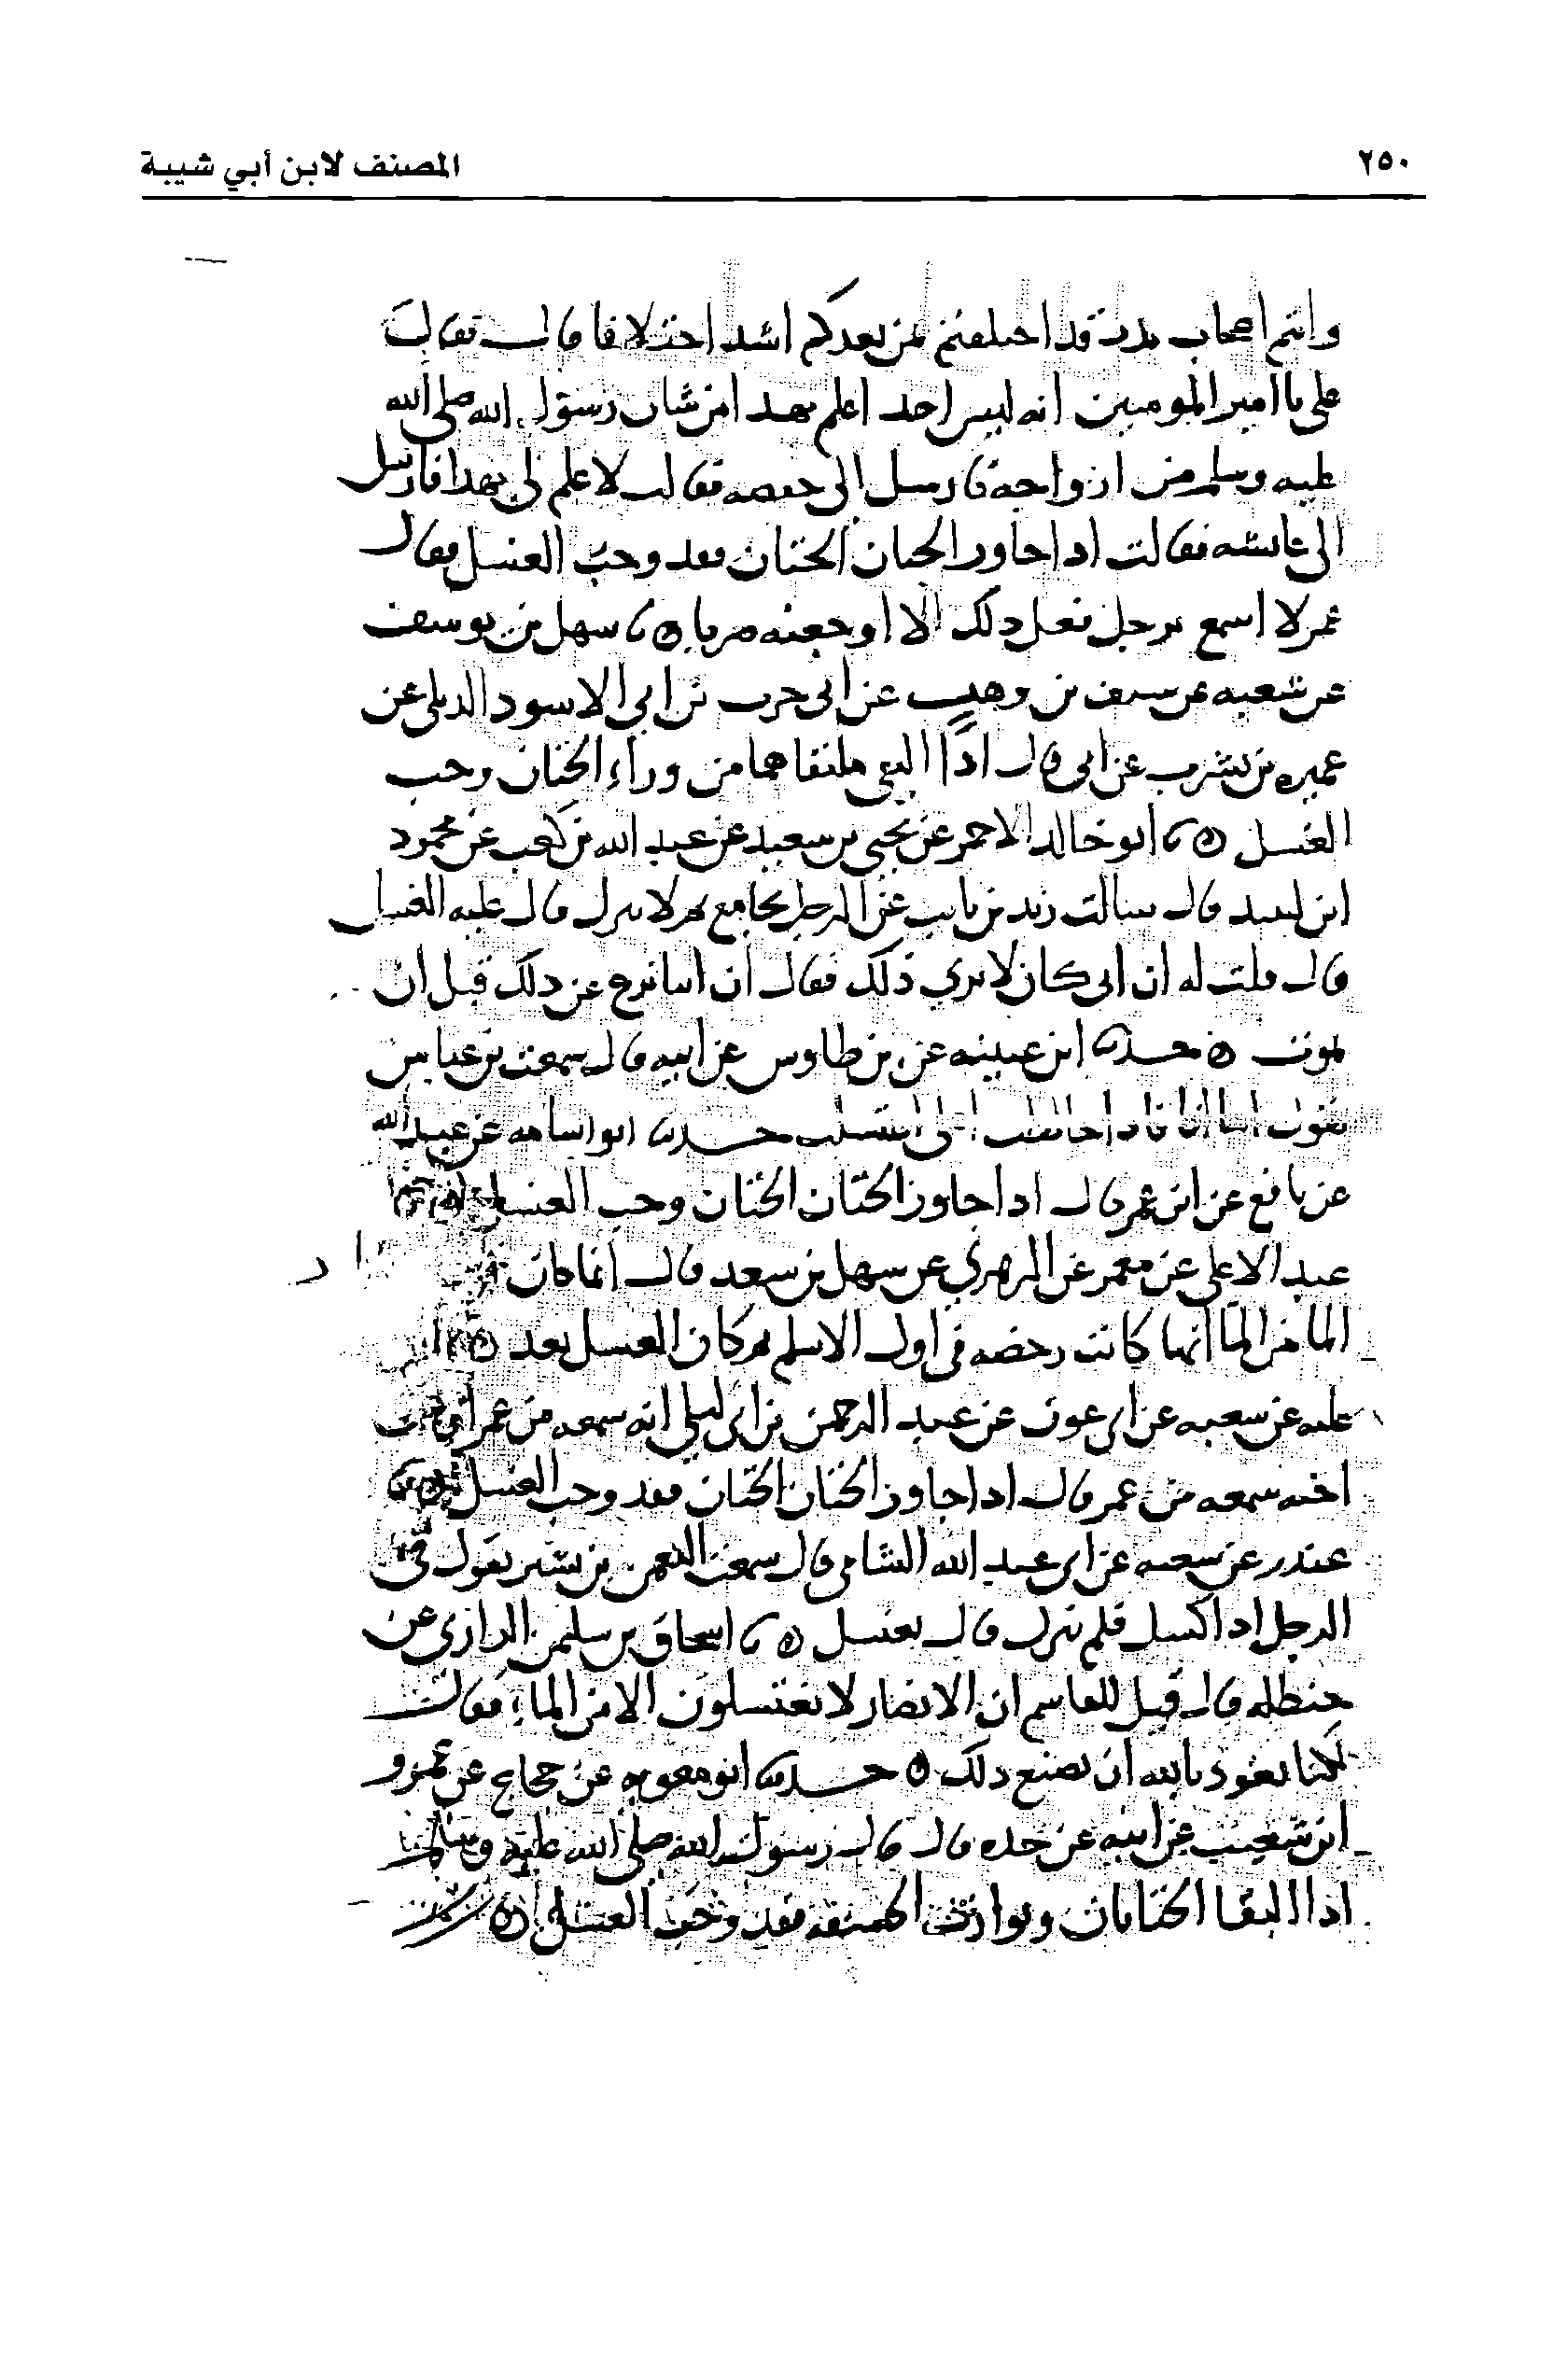 ٢٥٠ المصنف لابن أبي شيبة
وانتم اصحاب بدر قد اختلفتم فمن بعدكم اشد اختلافا قال فقال
علي يا امير المومنين انه ليس احد اعلم بهذا من شان رسول الله صلى الله
عليه وسلم من ازواجه فارسل الى حفصه فقالت لا علم لي بهذا فارسل
الى عائشه فقالت اذا جاوز الختان الختان فقد وجب الغسل فقال
عمر لا اسمع برجل فعل ذلك الا اوجعته ضربا ه ثنا سهل بن يوسف
عن شعبه عن سيف بن وهب عن ابي حرب بن ابي الاسود الديلي عن
عميره بن يثربي عن ابي قال اذا التقى ملتقاهما من وراء الختان وجب
الغسل ه ثنا ابو خالد الاحمر عن يحيى بن سعيد عن عبد الله بن كعب عن محمود
ابن لبيد قال سالت زيد بن ثابت عن الرجل يجامع ثم لا ينزل قال عليه الغسل
قال قلت له ان ابي كان لا يرى ذلك فقال ان ابيا نزع عن ذلك قبل ان
يموت ه حدثنا ابن عيينه عن بن طاوس عن ابيه قال سمعت بن عباس
يقول اما انا فاذا خالطت اهلي اغتسلت حدثنا ابو اسامه عن عبيد الله
عن نافع عن ابن عمر قال اذا جاوز الختان الختان وجب الغسل ه ثنا
عبد الاعلى عن معمر عن الزهري عن سهل بن سعد قال انما كان
الما من الما انها كانت رخصه في اول الاسلم ثم كان الغسل بعد ه ثنا ابن
عليه عن شعبه عن ابي عون عن عبد الرحمن بن ابي ليلى انه سمعه من عمر او من
اخيه سمعه من عمر قال اذا جاوز الختان الختان فقد وجب الغسل ه ثنا
غندر عن شعبه عن ابي عبد الله الشامي قال سمعت النعمن بن بشير يقول في
الرجل اذا اكسل فلم ينزل قال يغتسل ه ثنا اسحاق بن سليمن الرازي عن
حنظله قال قيل للقاسم ان الانصار لا يغتسلون الا من الماء فقالت
لكنا نعوذ بالله ان نصنع ذلك ه حدثنا ابو معويه عن حجاج عن عمرو
ابن شعيب عن ابيه عن جده قال قال رسول الله صلى الله عليه وسلم
اذا التقا الختانان وتوارت الحشفه فقد وجب الغسل ه